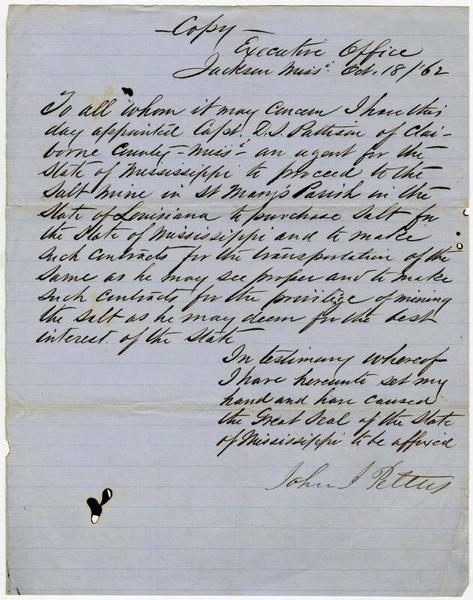 - Copy -
Executive Office
Jackson Miss. Oct. 18/62
To all whom it may Concern I have this
day appointed Capt. D.S. Pattison of Clai-
borne County Miss. an agent for the
State of Mississippi to proceed to the
Salt Mine in St Mary's Parish in the
State of Louisiana to purchase Salt for
the State of Mississippi and to make
such contracts for the transportation of the
same as he may see proper and to make
such contracts for the privilige of mining
the salt as he may deem for the best
interest of the State
In testimony whereof
I have hereunto set my
hand and have caused
the Great Seal of the State
of Mississippi to be affixed
John J Pettus